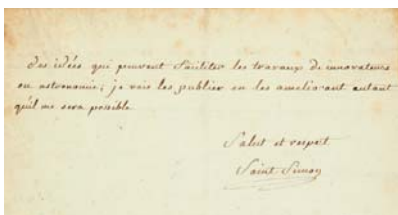 des idées qui peuvent faciliter les travaux de innovateurs
en astronomie; je vais les publier en les ameliorant autant
qu'il me sera possible
Salut et respect
Saint Simon